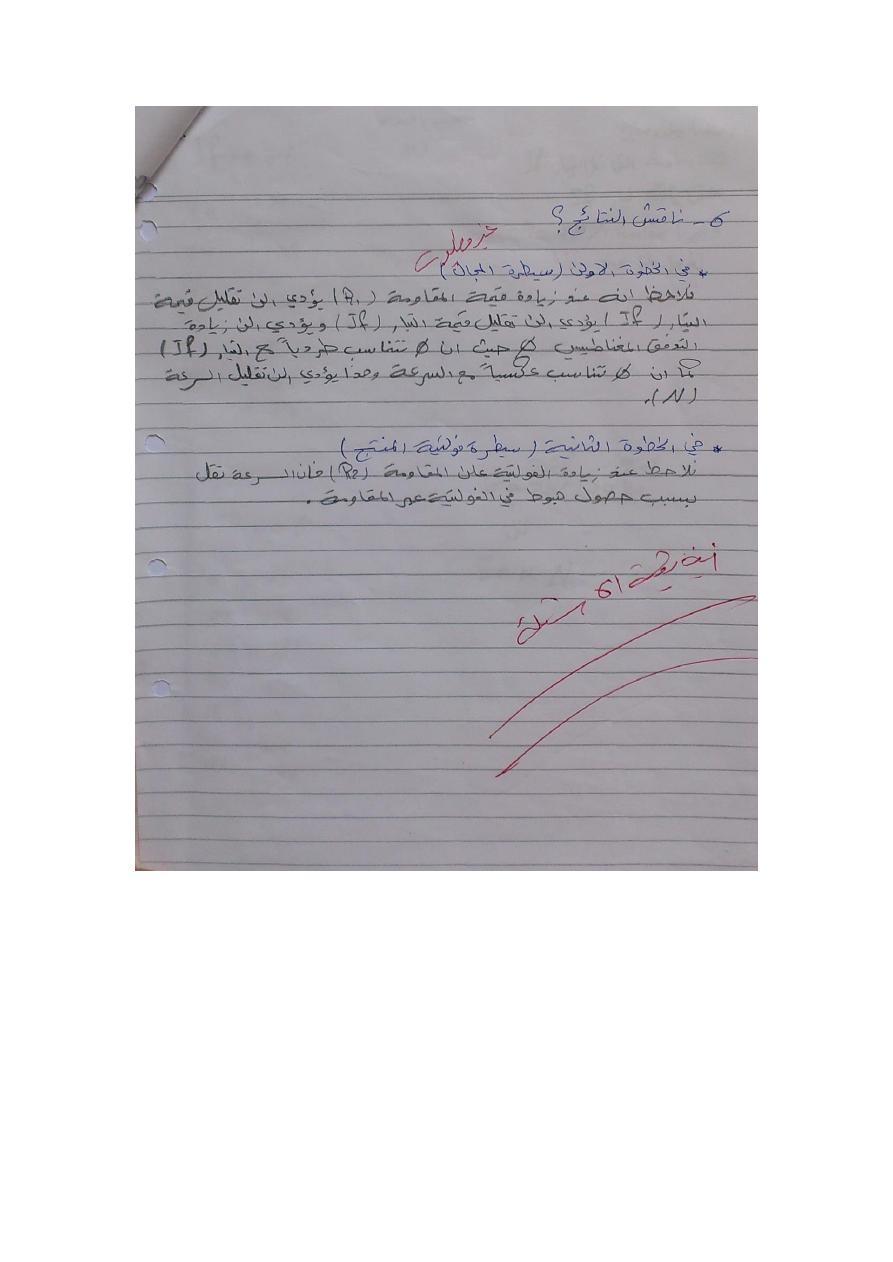 6 - ناقش النتائج ؟
غير مطلوب
* في الخطوة الاولى (سيطرة المجال)
نلاحظ انه عند زيادة قيمة المقاومة (R1) يؤدي الى تقليل قيمة
التيار (If) يؤدي الى تقليل قيمة التيار (If) ويؤدي الى زيادة
التدفق المغناطيسي Ø حيث ان Ø تتناسب طردياً مع التيار (If)
كما ان Ø تتناسب عكسياً مع السرعة وهذا يؤدي الى تقليل السرعة
(N).
* في الخطوة الثانية (سيطرة فولتية المنتج)
نلاحظ عند زيادة الفولتية على المقاومة (R2) فان السرعة تقل
بسبب حصول هبوط في الفولتية عبر المقاومة .
اين بقية الاسئلة